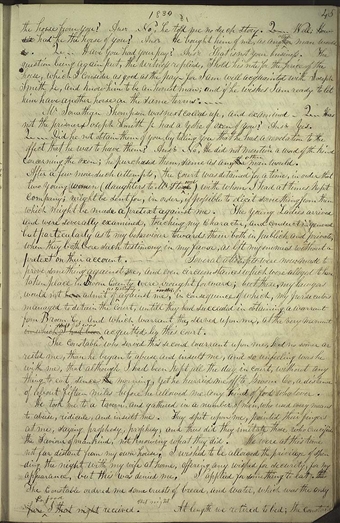 1830
the horse from you? Ansr. No, he told me no such story. Q— Well; How
did he get the horse of you? Ansr. He bought him of me, as another man would
do. Q— Have you had your pay? Ansr. That is not your business. The
question being again put, the witness replied, I hold his note for the price of the
horse, which I consider as good as the pay, for I am well acquainted with Joseph
Smith Jr, and know him to be an honest man; and if he wishes I am ready to let
him have another horse on the same terms.
Mr Jonathan Thompson was next called up, and examined. Q— Has
not the prisoner, Joseph Smith Jr had a yoke of oxen of you? Ansr. Yes.
Q— Did he not obtain them of you by telling you that he had a revelation to the
effect that he was to have them? Ansr. No, He did not mention a word of the kind
concerning the oxen; he purchased them, same as any other man would.
After a few more such attempts, the court was detained for a time, in order that
two young women (daughters to Mr Stoal) with whom I had at times kept
company; might be sent for, in order, if possible to elicit something from them
which might be made a pretext against me. The young ladies arrived
and were severally examined, touching my character, and conduct in general
but particularly as to my behavior towards them both in public and private,
when they both bore such testimony in my favor, as left my enemies without a
pretext on their account. Several attempts were now made to
prove something against me, and even circumstances which were alleged to have
taken place in Broom County were brought forward; but these, my lawyers
would not admit of against me, in consequence of which, my persecutors
managed to detain the court, until they had succeeded in obtaining a warrant
from Broom Co, and which warrant they served upon me, at the very moment
in which I had been acquitted by this court.
The constable who served this second warrant upon me, had no sooner ar-
rested me, than he began to abuse and insult me, and so unfeeling was he
with me, that although I had been kept all the day in court, without any
thing to eat, since the morning, yet he hurried me off to Broom Co, a distance
of about fifteen miles before he allowed me any kind of food whatever.
He took me to a tavern, and gathered in a number of men, who used every means
to abuse, ridicule, and insult me. They spit upon me, pointed their fingers
at me, saying prophesy, prophesy, and thus did they imitate those who crucified
the Savior of mankind, not knowing what they did. We were at this time
not far distant from my own house, I wished to be allowed the privilege of spen-
ding the night with my wife at home, offering any wished for security, for my
appearance, but this was denied me. I applied for something to eat, the
The constable ordered me some crusts of bread, and water, which was the only
fare I that night received. At length we retired to bed; the constable